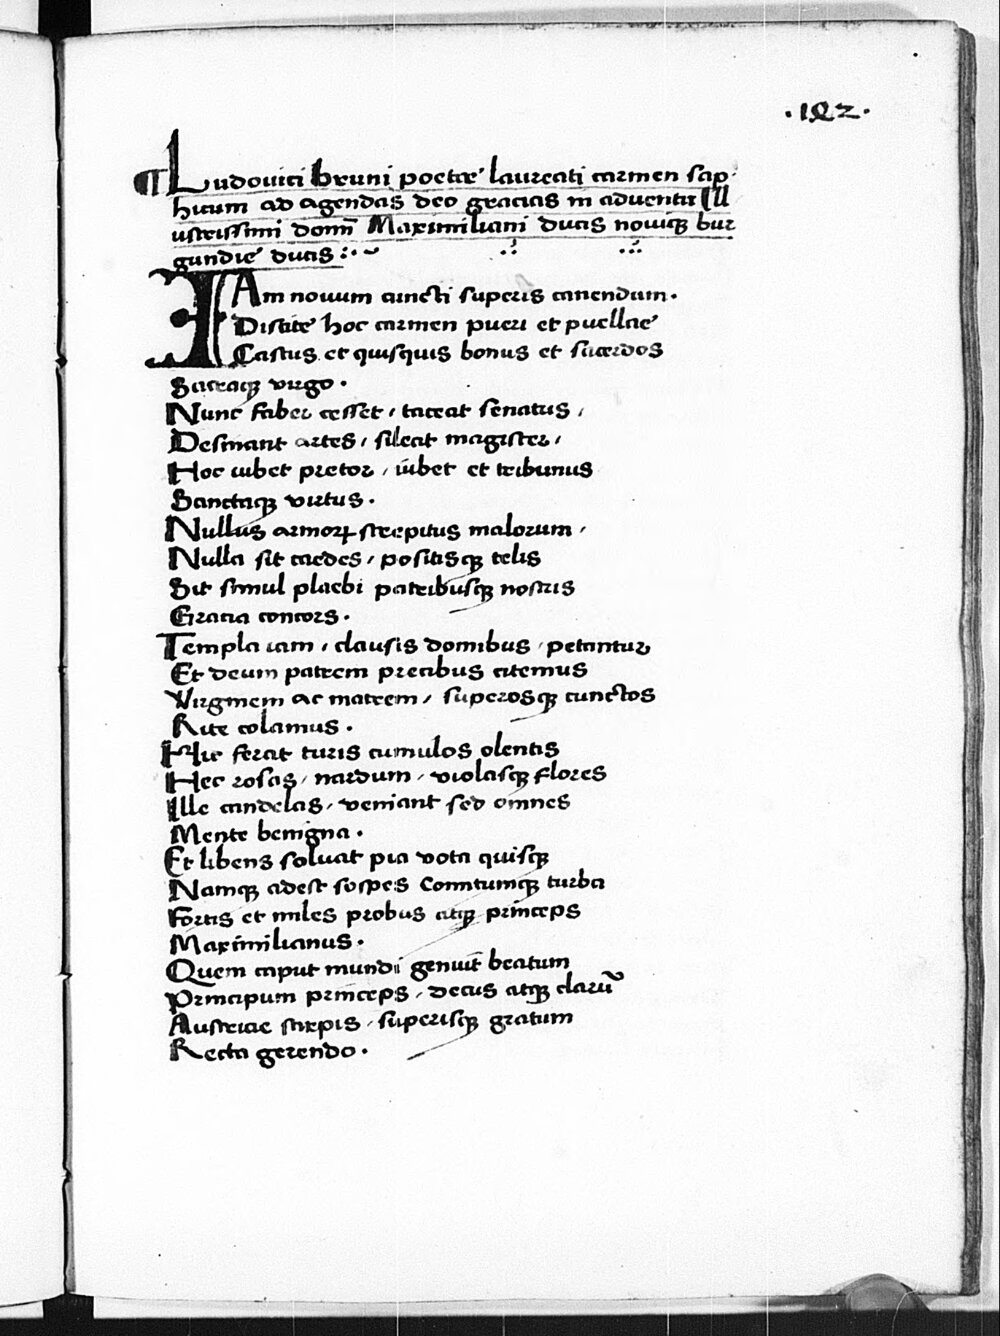 ·192·
¶ Ludovici bruni poetae laureati carmen sap
hicum ad agendas deo gracias in adventu Ill
ustrissimi domī Maximiliani ducis novicꝫ bur
gundie ducis :·~
IAm novum cuncti superis canendum·
Discite hoc carmen pueri et puellae
Castus et quisquis bonus et sacerdos
Sacraqꝫ virgo·
Nunc faber cesset, taceat senatus,
Desinant artes, sileat magister,
Hoc iubet pretor, iubet et tribunus
Sanctaqꝫ virtus·
Nullus armoꝝ strepitus malorum,
Nulla sit caedes, positisqꝫ telis
Sit simul plaebi patribusqꝫ nostris
Gracia concors·
Templa iam, clausis domibus, petantur
Et deum patrem precibus citemus
Virginem ac matrem, superosqꝫ cunctos
Rite colamus·
Hic ferat turis cumulos olentis
Hec rosas, nardum, violasqꝫ flores
Ille candelas, veniant sed omnes
Mente benigna·
Et libens solvat pia vota quisqꝫ
Namqꝫ adest sospes comitumqꝫ turba
Fortis et miles probus atqꝫ princeps
Maximilianus·
Quem caput mundi genuit beatum
Principum princeps, decus atqꝫ clarū
Austriae stirpis, superisqꝫ gratum
Recta gerendo·